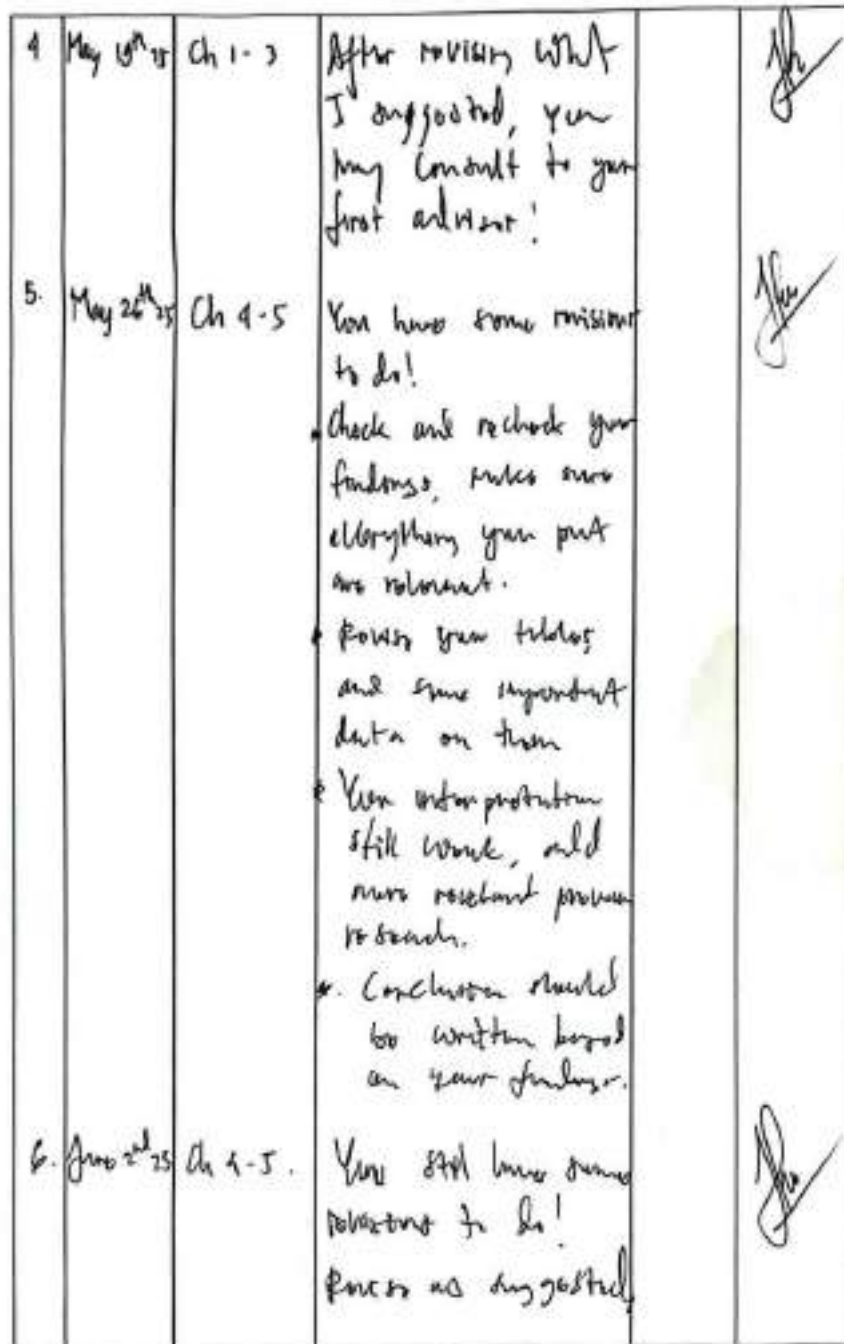 4 May 19th 25 Ch 1-3 After revising what
I suggested, you
may consult to your
first advisor!
5. May 26th 25 Ch 4-5 You have some revisions
to do!
Check and recheck your
findings, make sure
everything your put
are relevant.
Revise your tables
and some important
data on them
Your interpretation
still weak, add
more relevant previous
research.
Conclusion should
be written based
on your findings.
6. June 2nd 25 Ch 4-5. You still have some
revisions to do!
Revise as suggested,